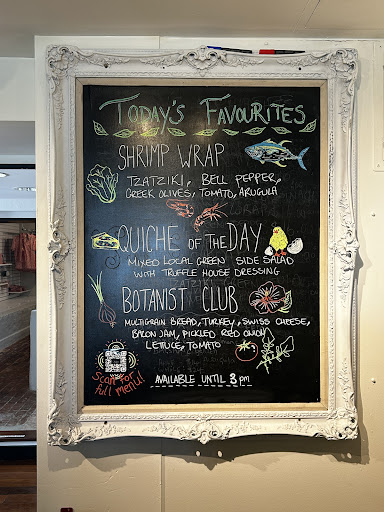 TODAY'S FAVOURITES
SHRIMP WRAP
TZATZIKI, BELL PEPPER,
GREEK OLIVES, TOMATO, ARUGULA
QUICHE OF THE DAY
MIXED LOCAL GREEN SIDE SALAD
WITH TRUFFLE HOUSE DRESSING
BOTANIST CLUB
MULTIGRAIN BREAD, TURKEY, SWISS CHEESE,
BACON JAM, PICKLED RED ONION
LETTUCE, TOMATO
Scan for
full menu!
AVAILABLE UNTIL 3 pm